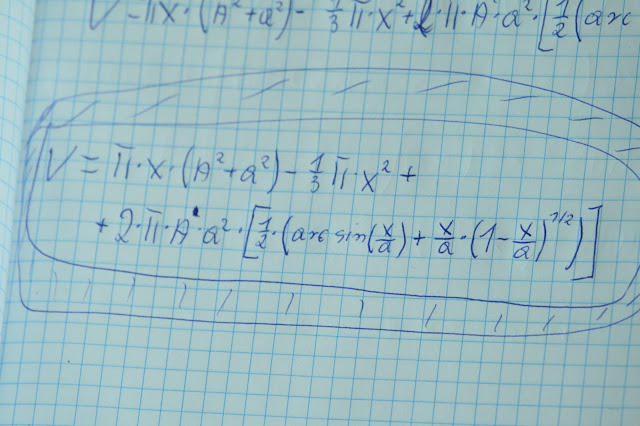 V = π·x·(A²+a²) - 1/3 π·x² + 2·π·A·a²·[1/2(arc
V = π·x·(A²+a²) - 1/3 π·x² +
+ 2·π·A·a²·[1/2·(arc sin(x/a) + x/a·(1 - x/a)^1/2)]